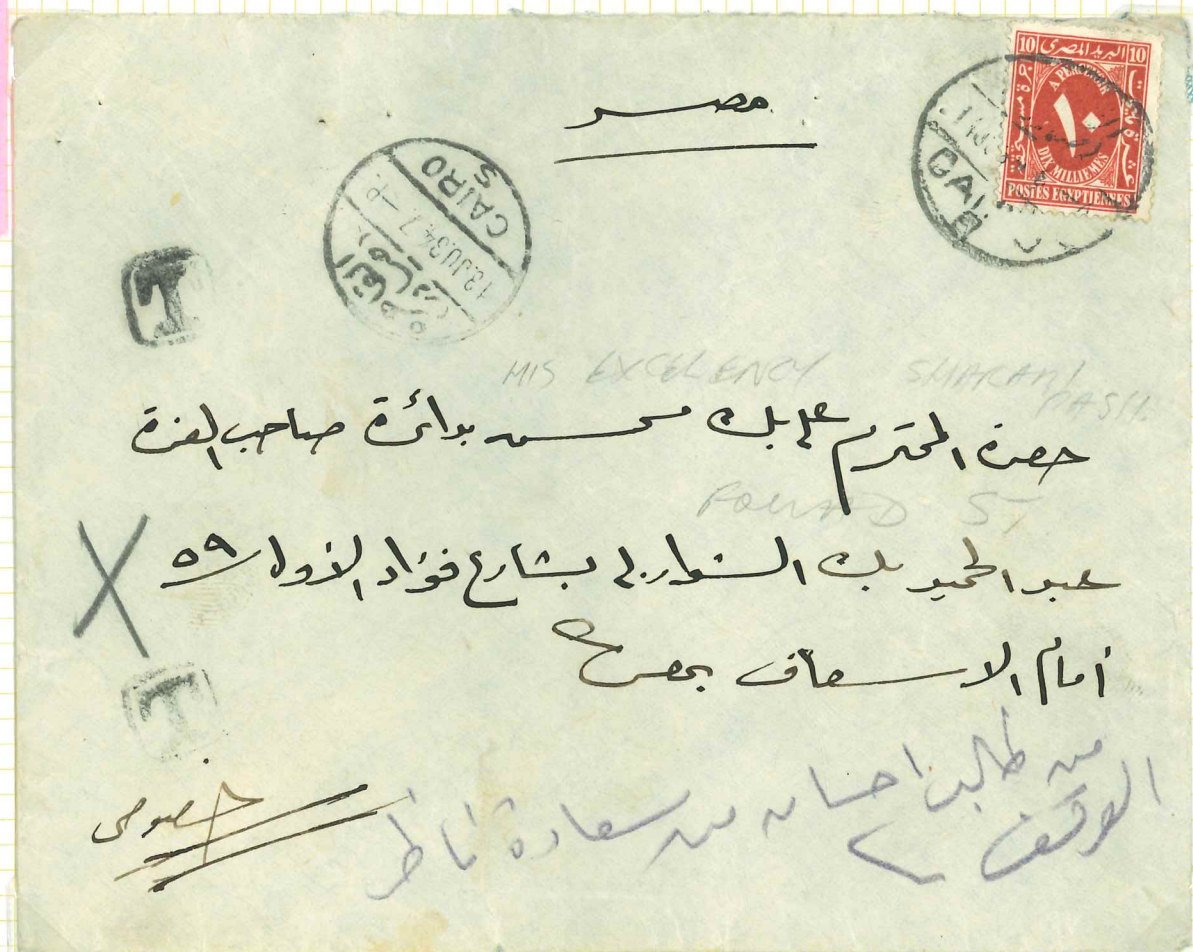 10 البريد المصرى 10
A PERCEVOIR
١٠
DIX MILLIEMES
POSTES EGYPTIENNES
مصر
CAIRO
S
13.JU.34.7 -P.
القاهرة
CAI
T
HIS EXCELENCY SHARAWI PASH.
حضرة المحترم على بك محسن بدائرة صاحب العزة
FOUAD ST
عبد الحميد بك الشواربى بشارع فؤاد الأول ٥٩
X
أمام الاسعاف بمصر
T
من طالب احسان من سعادة ناظر
الوقف
خصوصى